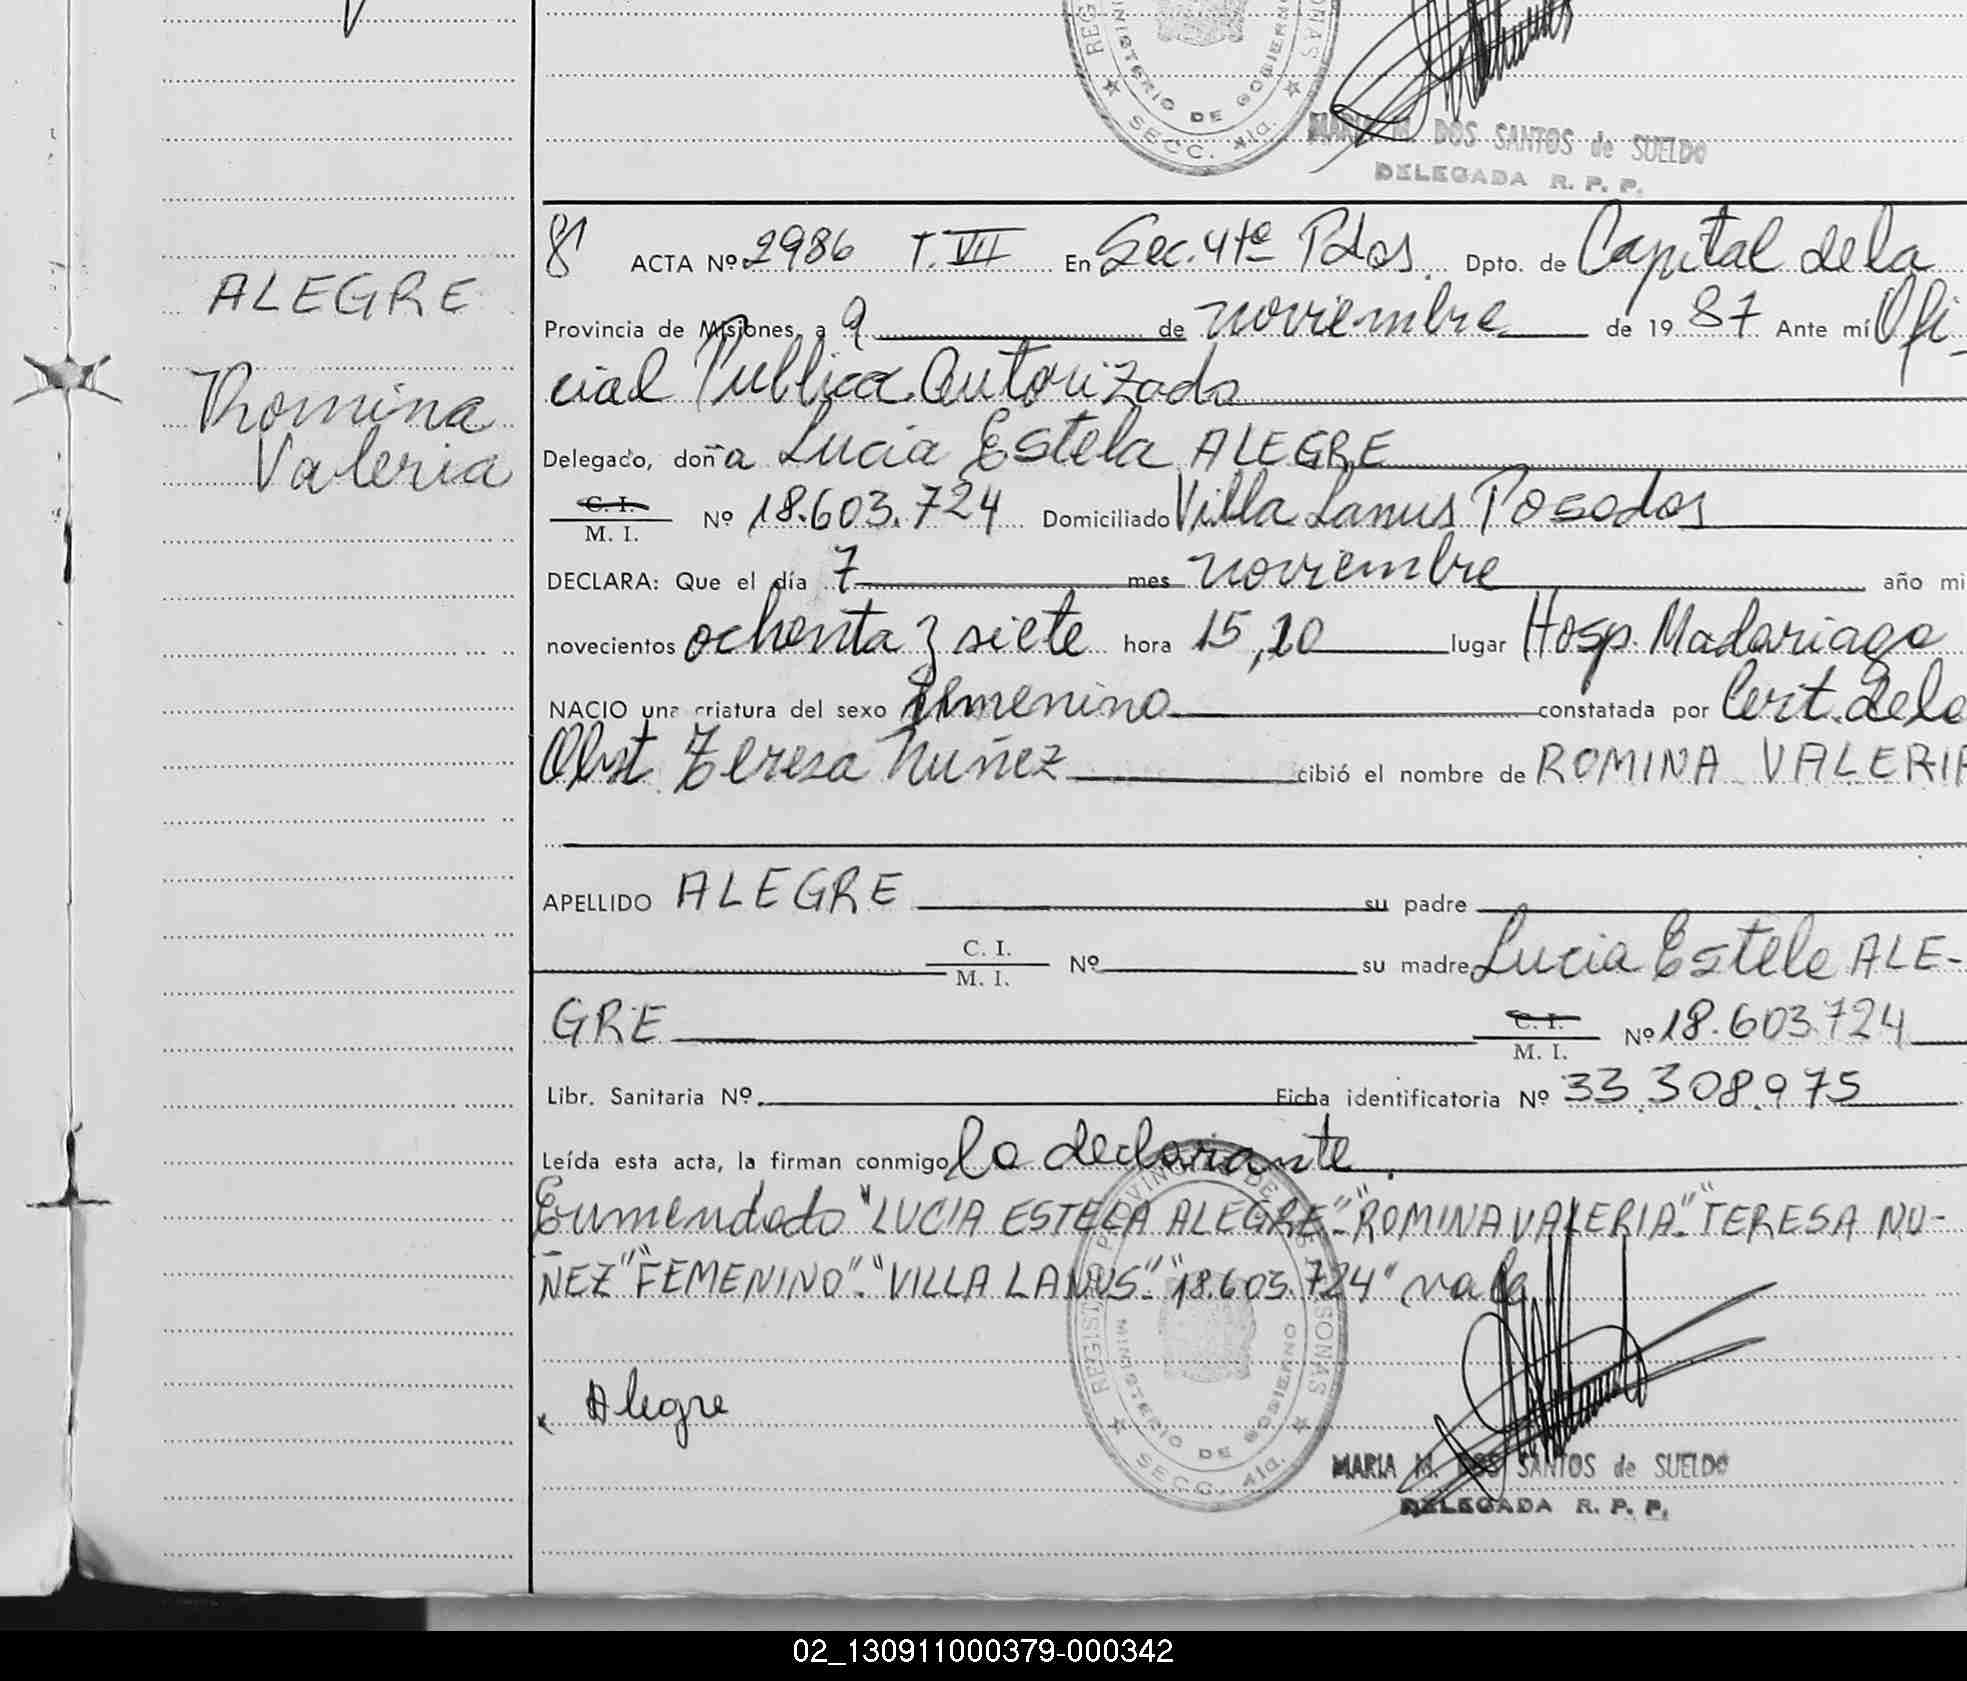 REG ONAS
MINISTERIO DE GOBIERN
SECC. 4ta.
MARIA M. DOS SANTOS de SUELDO
DELEGADA R. P. P.
81 ACTA Nº 2986 T. VII En Sec. 4ta Pdas. Dpto. de Capital de la
ALEGRE
Provincia de Misiones, a 9 de noviembre de 19 87 Ante mí Ofi-
cial Publica Autorizada
Romina
Valeria
Delegado, doña Lucia Estela ALEGRE
C. I.
M. I. Nº 18.603.724 Domiciliado Villa Lanus Posadas
DECLARA: Que el día 7 mes noviembre año mi
novecientos ochenta y siete hora 15,20 lugar Hosp. Madariaga
NACIO una criatura del sexo femenino constatada por Cert. de la
Obst. Teresa Nuñez cibió el nombre de ROMINA VALERIA
APELLIDO ALEGRE su padre
C. I.
M. I. Nº su madre Lucia Estela ALE-
GRE C. I.
M. I. Nº 18.603.724
Libr. Sanitaria Nº Ficha identificatoria Nº 33.308.975
Leída esta acta, la firman conmigo la declarante.
Enmendado "LUCIA ESTELA ALEGRE"-"ROMINA VALERIA"-"TERESA NU-
ÑEZ" "FEMENINO"-"VILLA LANUS"-"18.603.724" vale
Alegre
REGISTRO PROVINCIAL DE LAS PERSONAS
MINISTERIO DE GOBIERNO
SECC. 4ta.
MARIA M. DOS SANTOS de SUELDO
DELEGADA R. P. P.
02_130911000379-000342